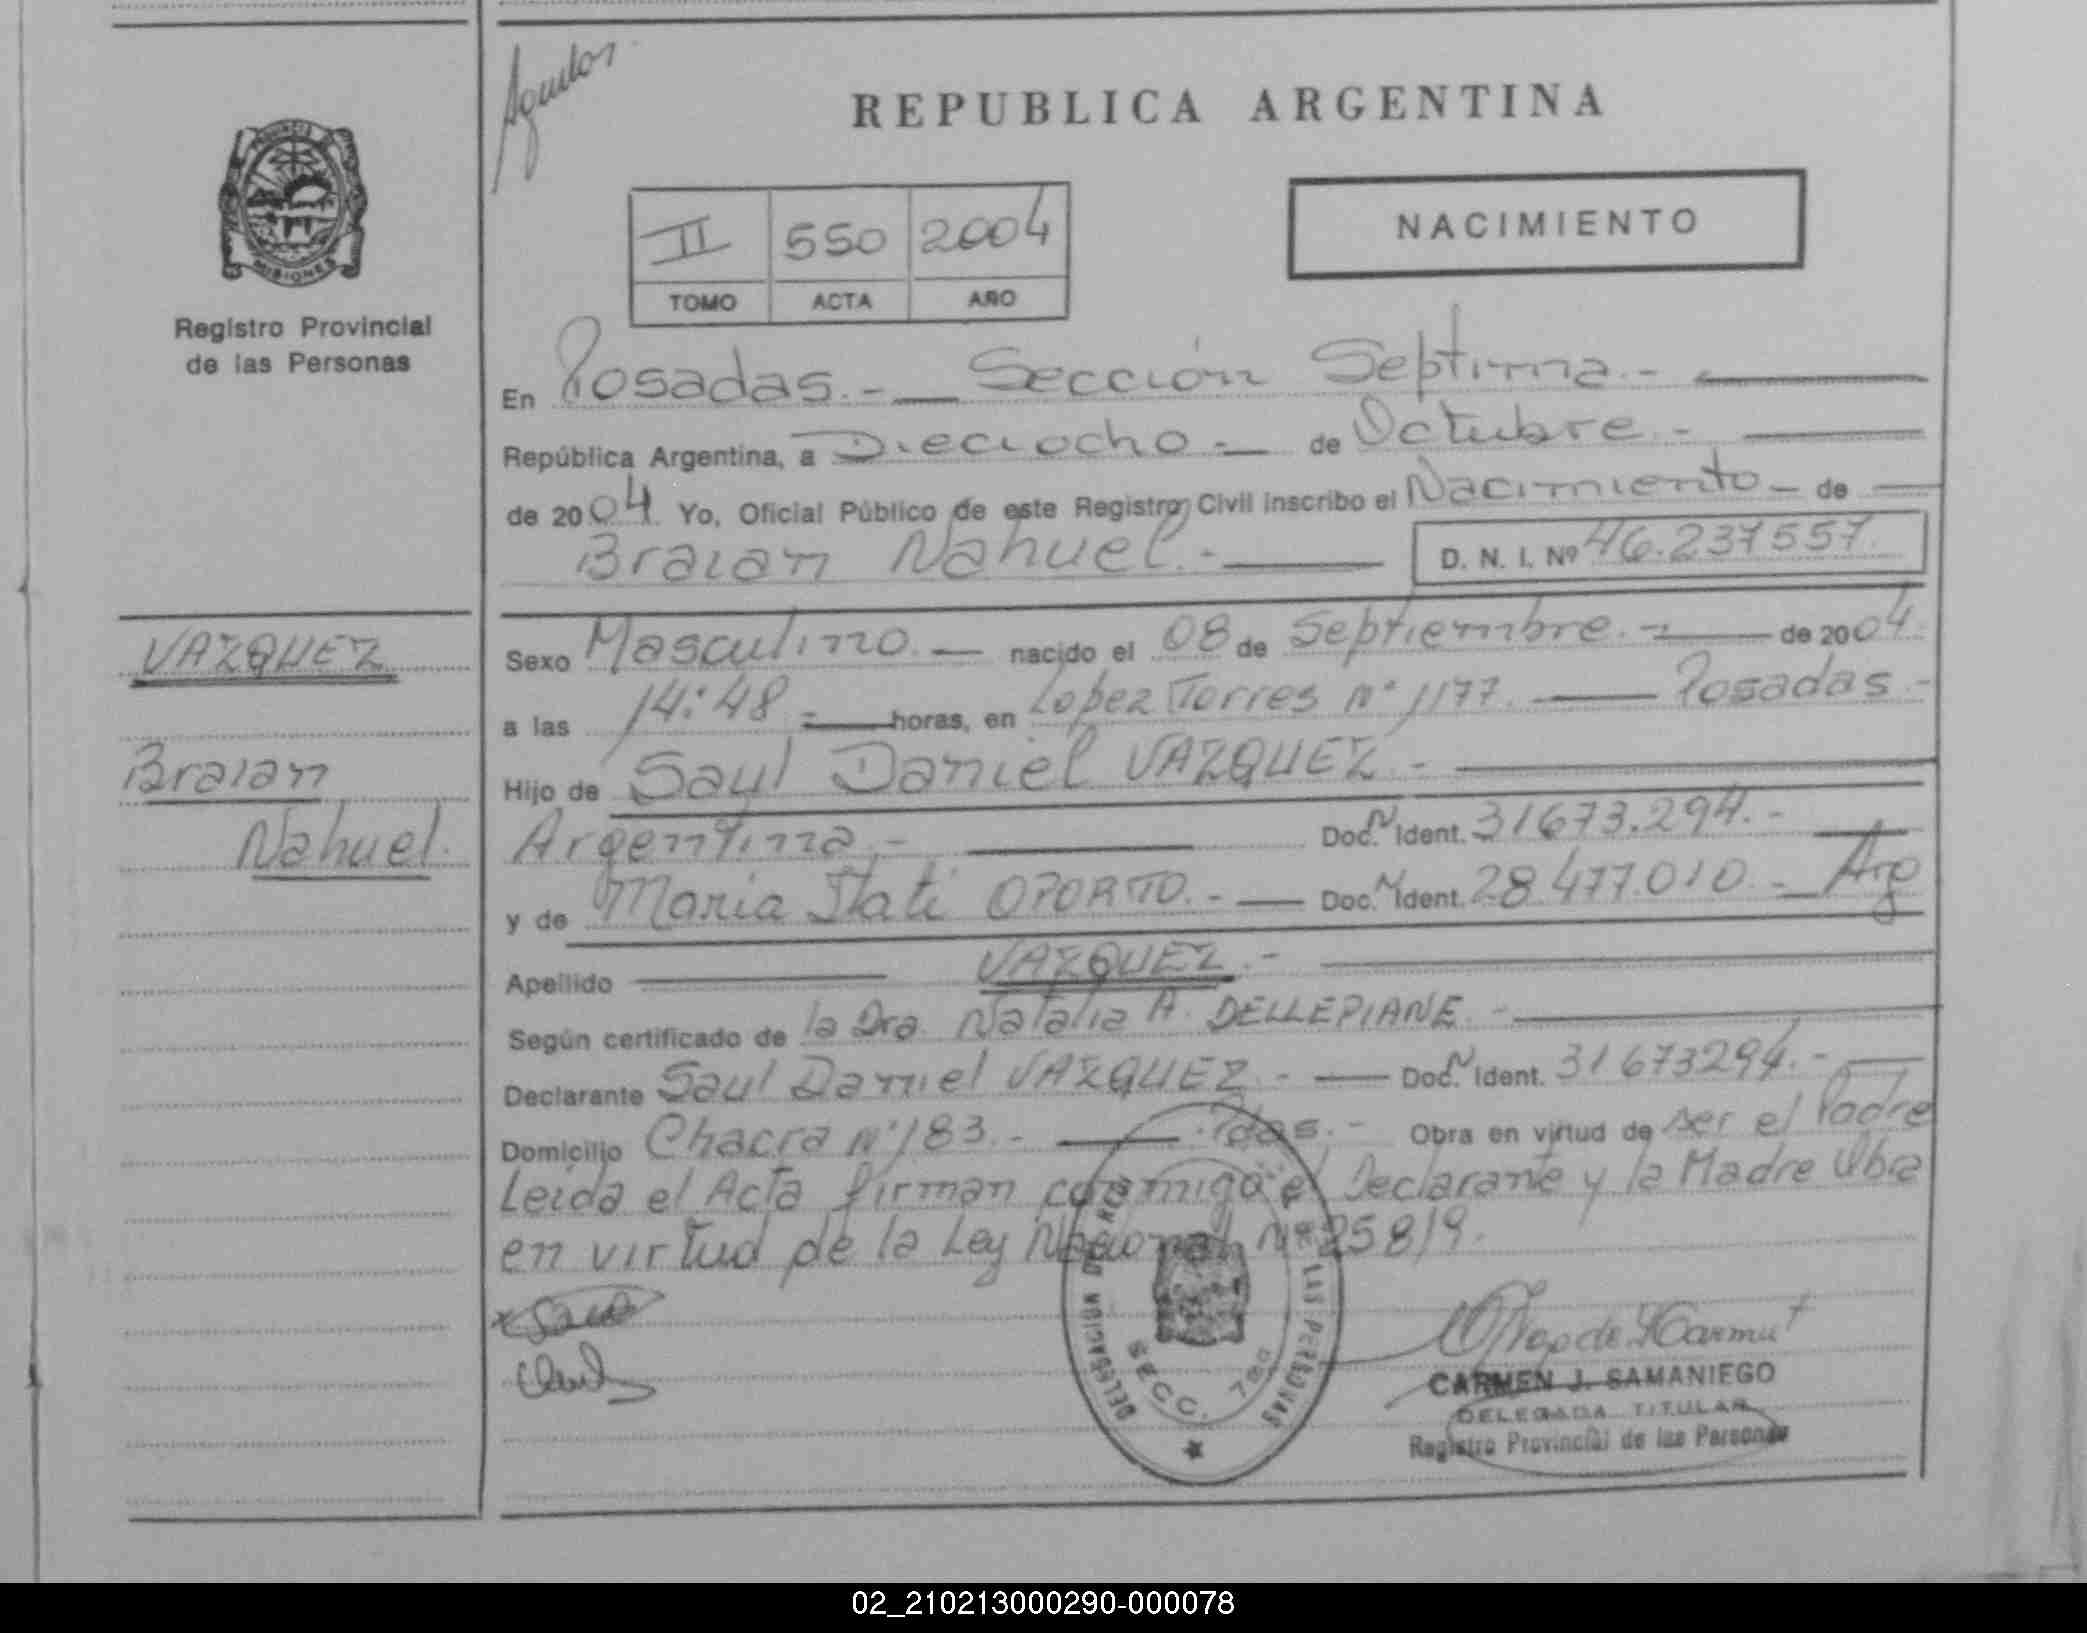 Agulor
REPUBLICA ARGENTINA
NACIMIENTO
II 550 2004
TOMO ACTA AÑO
MISIONES
Registro Provincial
de las Personas
En Posadas.- Sección Septima.-
República Argentina, a Dieciocho.- de Octubre.-
de 2004. Yo, Oficial Público de este Registro Civil inscribo el Nacimiento - de
Braian Nahuel.- D. N. I. Nº 46.237557.
VAZQUEZ
Braian
Nahuel.
Sexo Masculino.- nacido el 08 de Septiembre.- de 2004.
a las 14:48 - horas, en Lopez Torres n° 1177. Posadas.-
Hijo de Saul Daniel VAZQUEZ.-
Argentina.- Doc. N Ident. 31673.294.-
y de Maria Itati OPORTO.- Doc. N Ident. 28.477.010.- Arg
Apellido VAZQUEZ.-
Según certificado de la Dra. Natalia A. DELLEPIANE.-
Declarante Saul Daniel VAZQUEZ.- Doc. N Ident. 31673294.-
Domicilio Chacra n° 183.- Pdas.- Obra en virtud de ser el Padre
Leida el Acta firman conmigo el Declarante y la Madre Obra
en virtud de la Ley Nacional Nº 25819.
DELEGACION DE REG. DE LAS PERSONAS
SECC. 7ma
CARMEN J. SAMANIEGO
DELEGADA TITULAR
Registro Provincial de las Personas
02_210213000290-000078